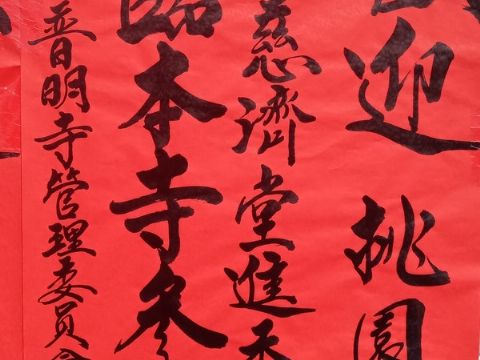 迎桃園
慈濟堂進香
臨本寺參
普明寺管理委員會